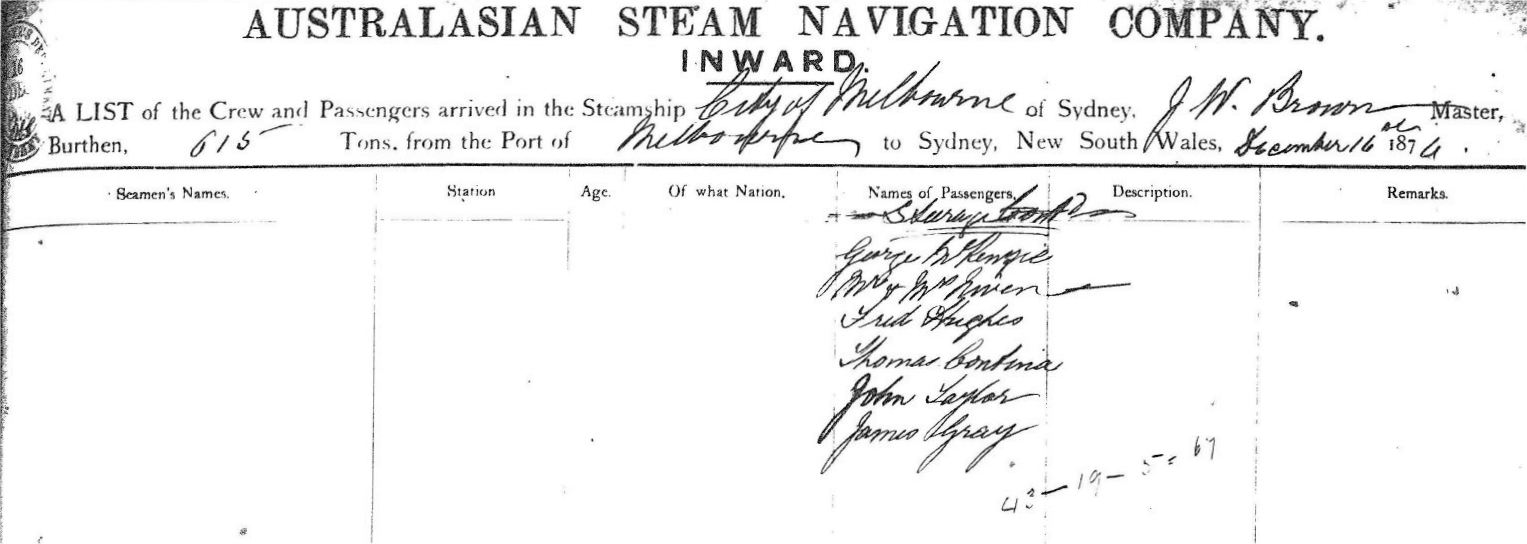 AUSTRALASIAN STEAM NAVIGATION COMPANY.
INWARD.
A LIST of the Crew and Passengers arrived in the Steamship City of Melbourne of Sydney, J. W. Brown Master,
Burthen, 615 Tons, from the Port of Melbourne to Sydney, New South Wales, December 16 1874.
Seamen's Names. Station Age. Of what Nation. Names of Passengers, Description. Remarks.
Steerage
George McKenzie
Mr & Mrs Niven
Fred Hughes
Thomas Contina
John Taylor
James Gray
43 - 19 - 5 = 67